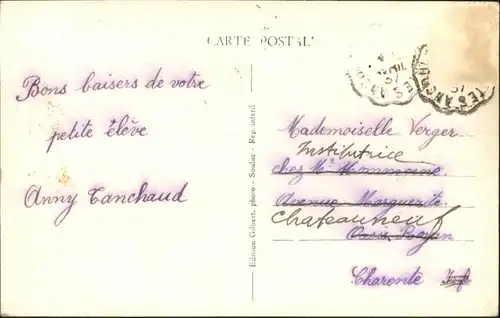 CARTE POSTALE
Bons baisers de votre
petite élève
Anny Tanchaud
Edition Gilbert, photo - Soulac - Rep. interd
Mademoiselle Verger
Institutrice
chez Mr
Avenue Marguerite
Chateauneuf
Oasis Royan
Charente Inf